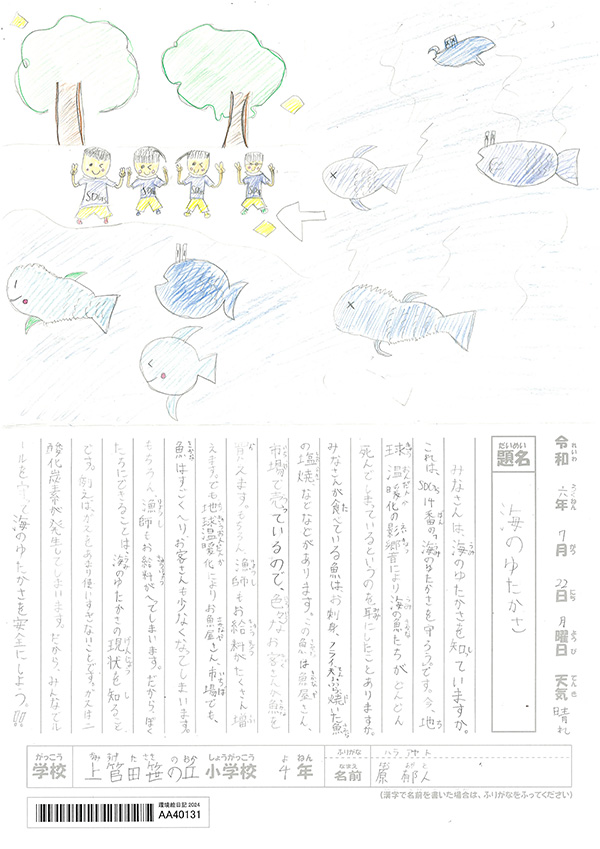 SDGs
SDGs
SDGs
SDGs
令和 六年 7月 22日 月曜日 天気 晴れ
れいわ ろくねん がつ にち ようび てんき
だいめい
題名
海のゆたかさ
みなさんは海のゆたかさを知していますか。
これは、SDGs14番の海のゆたかさを守ろうです。今、地
球温暖化の影郷音により海の魚たちがどんどん
死んでしまっているというのを耳にしたことありますか。
みなさんが食べている魚はお刺身、フライ、天ぷら、焼いた魚
の塩焼などなどがあります。この魚は魚屋さん、
市場で売っているので、色々なお客さんが魚を
買えます。もちろん漁師もお給料がたくさん増
えます。でも地球温暖化によりお魚屋さん、市場でも、
魚はすごくへりお客さんも少なくなてしまいます。
もちろん、漁師もお給料がへてしまいます。だからぼく
たちにできることは、海のゆたかさの現状を知ること
です。例えば、がスをあまり使いすぎないことです。ガスは二
酸化炭素が発生してしまいます。だから、みんなでル
ールを守って海のゆたかさを安全にしよう。!!
がっこう しょうがっこう よ ねん
学校 上菅田笹の丘 小学校 4年
ふりがな ハラ アヤト
なまえ
名前 原 郁人
(漢字で名前を書いた場合は、ふりがなをふってください)
環境絵日記 2024
AA40131